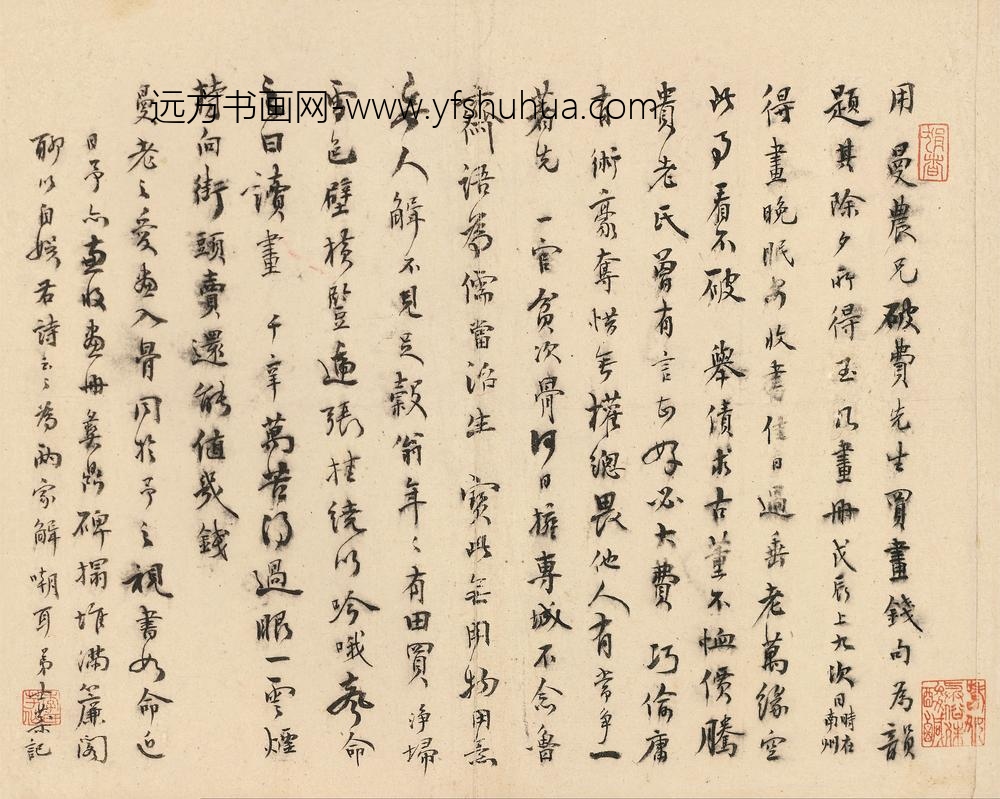 用曼農兄破費先生買畫錢句為韻
題其除夕所得玉几畫冊戊辰上九次日時在南州
得畫晚眠安收書佳日過垂老萬緣空
此事看不破 舉債求古董不恤價騰
貴老氏曾有言甚好必大費 巧偷庸
有術豪奪惜無權總畏他人有常爭一
著先 一官貧次骨何日擁專城不念魯
齋語為儒當治生 寶此無用物用意
無人解不見足穀翁年々有田買 净埽
雪色壁橫豎逼張挂繞以吟哦聲命
之曰讀畫 千辛萬苦得過眼一雲煙
若向街頭賣還能值幾錢
曼老之愛畫入骨同於予之視書如命近
日予亦兼收畫冊彝鼎碑搨堆滿簾閣
聊以自娛君詩云々為兩家解嘲耳弟士棻記
远方书画网 www.yfshuhua.com